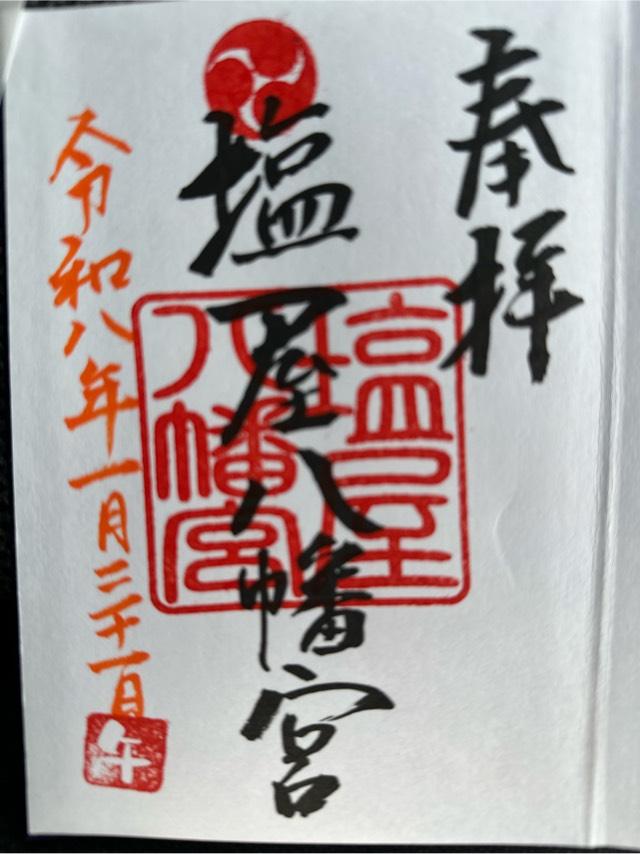 奉拝
塩屋八幡宮
塩屋
八幡宮
令和八年一月二十一日
午